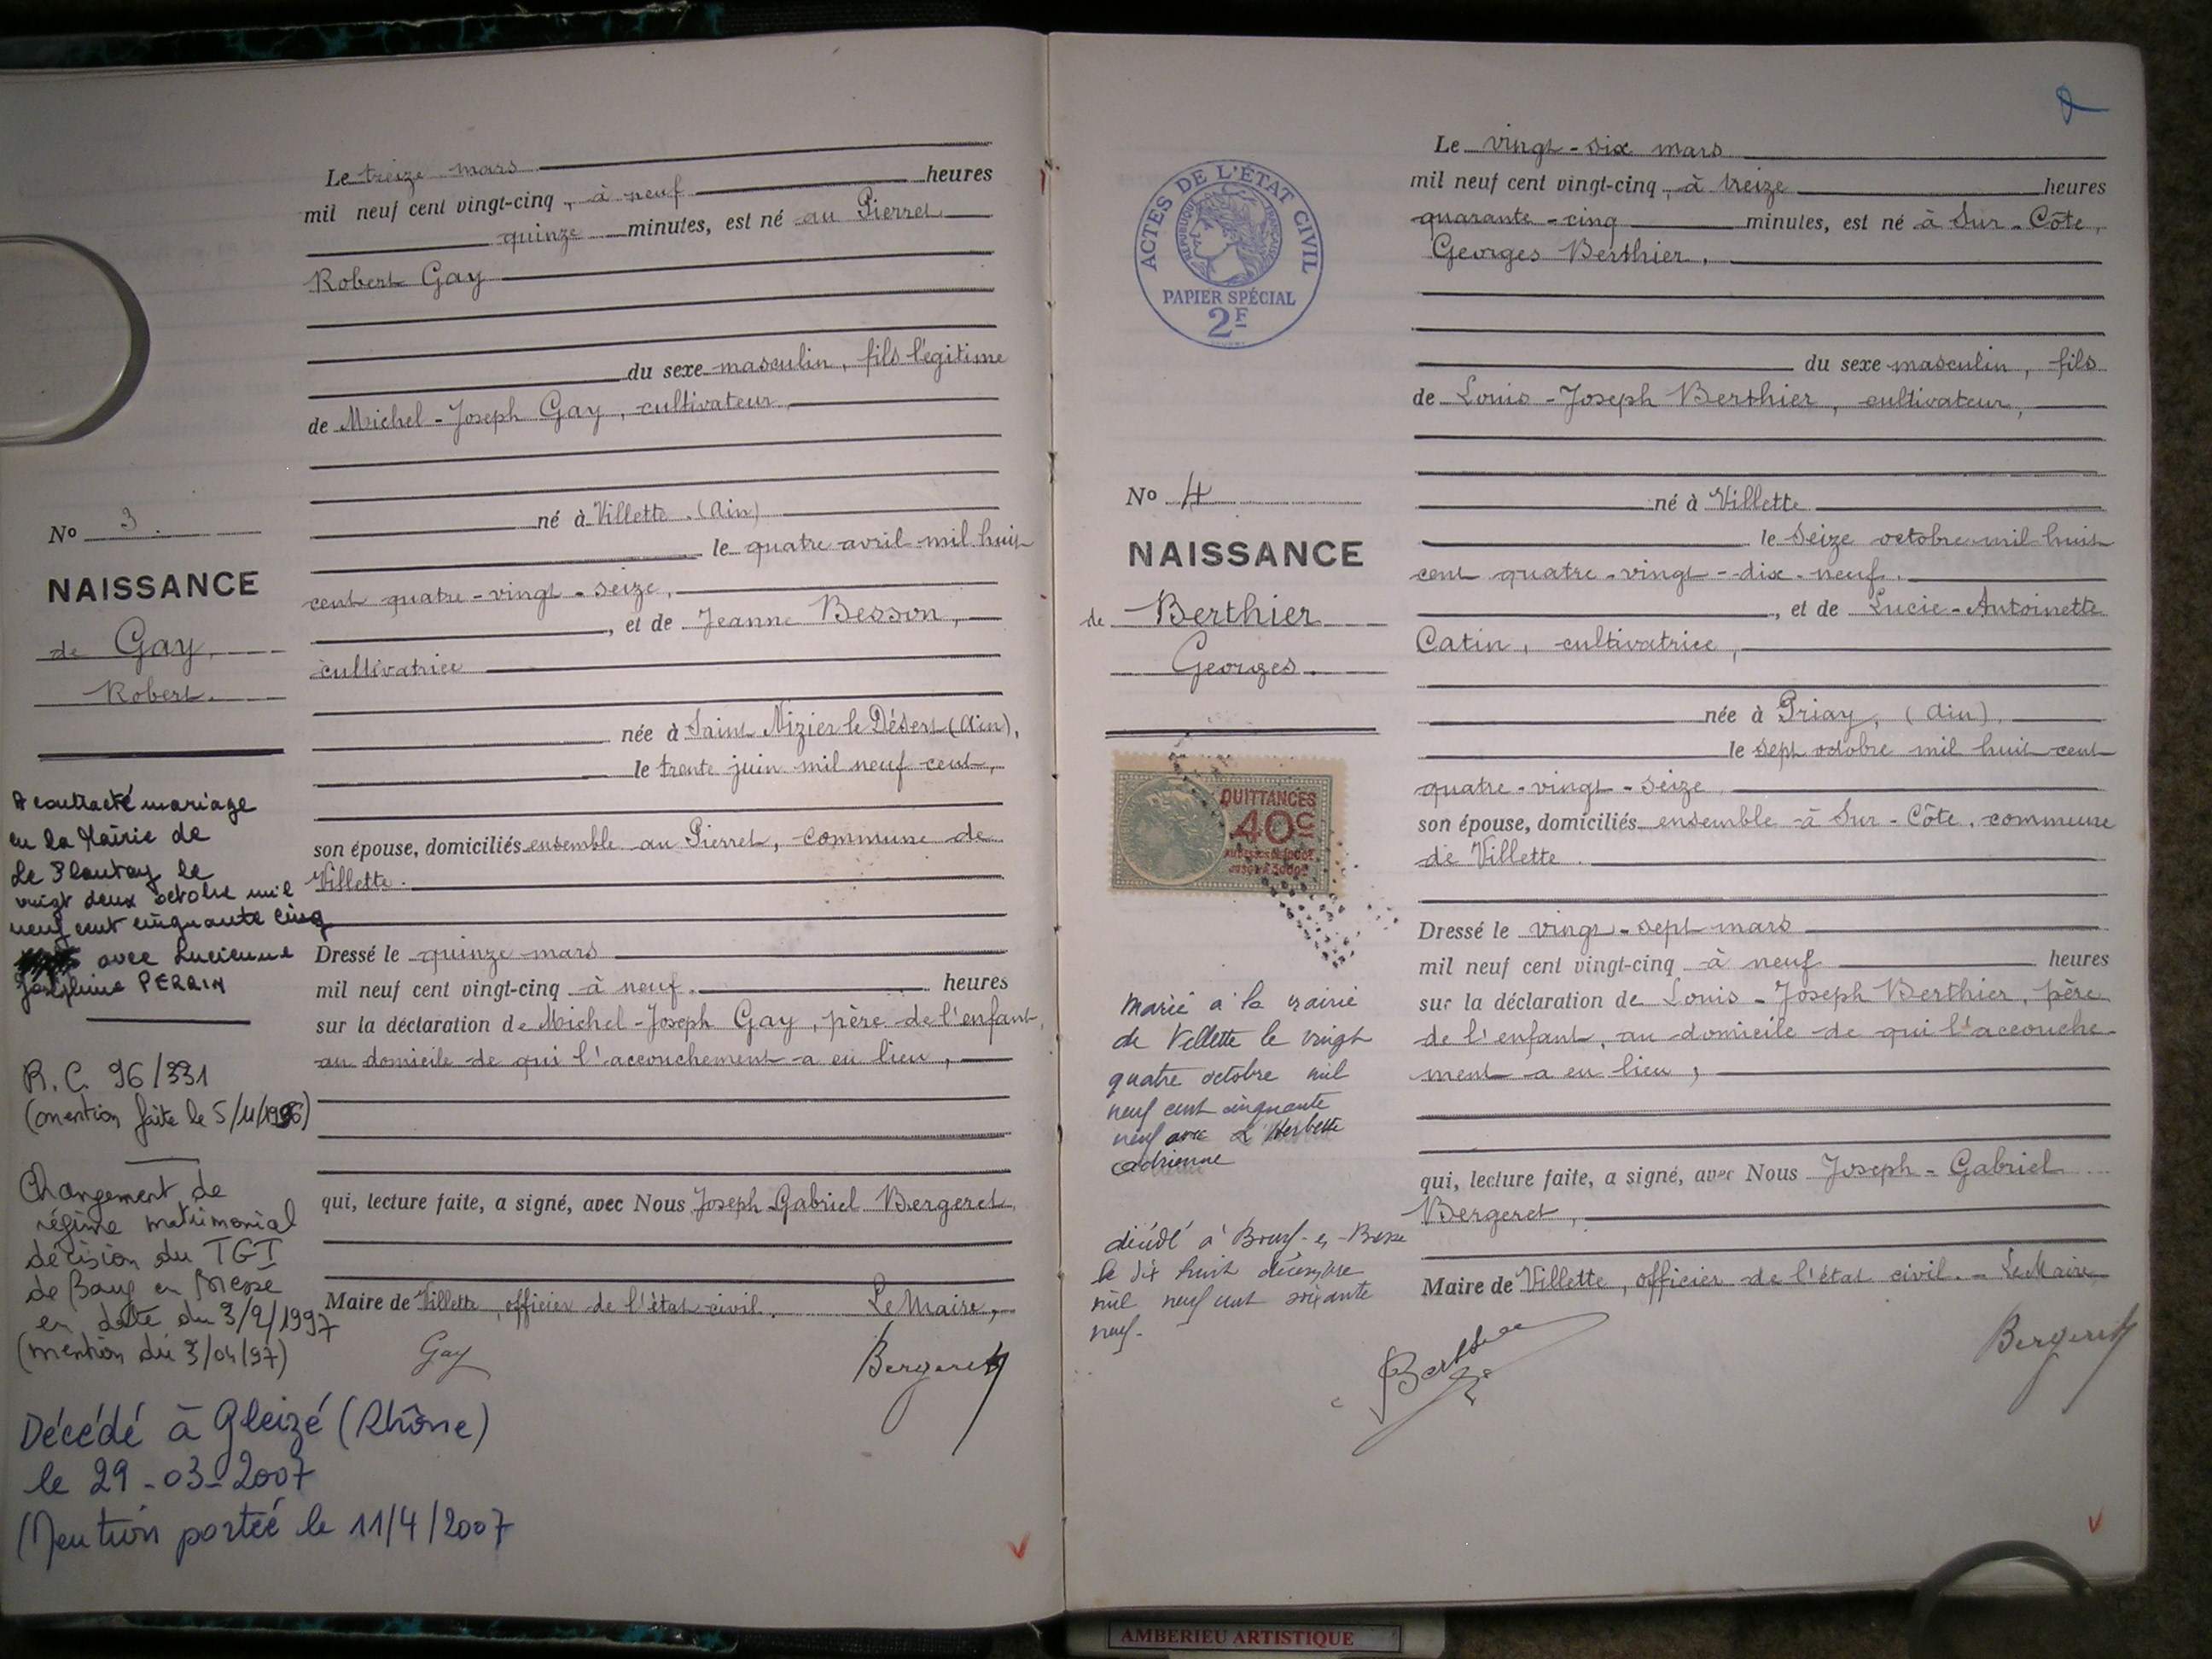 Le treize mars
mil neuf cent vingt-cinq, à neuf heures
quinze minutes, est né au Pierret
Robert Gay
du sexe masculin, fils légitime
de Michel-Joseph Gay, cultivateur,
né à Villette (Ain)
le quatre avril mil huit
cent quatre-vingt-seize,
, et de Jeanne Besson,
cultivatrice
née à Saint Nizier le Désert (Ain),
le trente juin mil neuf cent,
son épouse, domiciliés ensemble au Pierret, commune de
Villette.
Dressé le quinze mars
mil neuf cent vingt-cinq à neuf. heures
sur la déclaration de Michel-Joseph Gay, père de l'enfant,
au domicile de qui l'accouchement a eu lieu,
qui, lecture faite, a signé, avec Nous Joseph-Gabriel Bergeret,
Maire de Villette, officier de l'état civil. Le Maire,
Gay
Bergeret
No 3.
NAISSANCE
de Gay,
Robert.
A contracté mariage
en la Mairie de
Le Plantay le
vingt deux octobre mil
neuf cent cinquante cinq
avec Lucienne
Joséphine PERRIN
R.C. 96/331
(mention faite le 5/11/1996)
Changement de
régime matrimonial
décision du TGI
de Bourg en Bresse
en date du 3/2/1997
(mention du 3/04/97)
Décédé à Gleizé (Rhône)
le 29-03-2007
(Mention portée le 11/4/2007
ACTES DE L'ÉTAT CIVIL
RÉPUBLIQUE FRANÇAISE
PAPIER SPÉCIAL
2F
No 4
NAISSANCE
de Berthier
Georges.
QUITTANCES
40c
marié à la mairie
de Villette le vingt
quatre octobre mil
neuf cent cinquante
neuf avec L'Herbette
Adrienne
décédé à Bourg-en-Bresse
le dix huit décembre
mil neuf cent soixante
neuf.
Le vingt-six mars
mil neuf cent vingt-cinq, à treize heures
quarante-cinq minutes, est né à Sur-Côte,
Georges Berthier,
du sexe masculin, fils
de Louis-Joseph Berthier, cultivateur,
né à Villette
le seize octobre mil huit
cent quatre-vingt-dix-neuf.
, et de Lucie-Antoinette
Catin, cultivatrice,
née à Priay, (Ain),
le sept octobre mil huit cent
quatre-vingt-seize,
son épouse, domiciliés ensemble à Sur-Côte, commune
de Villette.
Dressé le vingt-sept mars
mil neuf cent vingt-cinq à neuf heures
sur la déclaration de Louis-Joseph Berthier, père
de l'enfant, au domicile de qui l'accouche-
ment a eu lieu,
qui, lecture faite, a signé, avec Nous Joseph-Gabriel
Bergeret,
Maire de Villette, officier de l'état civil. - Le Maire
Berthier
Bergeret
AMBERIEU ARTISTIQUE